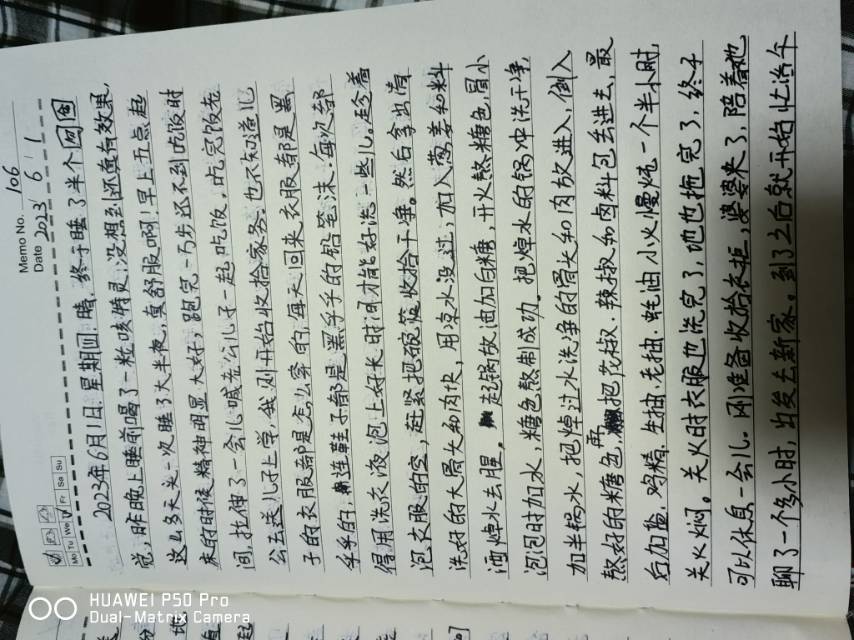 Memo No. 106
Date 2023 6 1
Mo Tu We Fr Sa Su
2023年6月1日. 星期四. 晴. 终于睡了半个囫囵
觉, 昨晚上睡前喝了一粒咳特灵, 没想到还真有效果,
这么多天头一次睡了大半夜, 真舒服啊! 早上五点起
床的时候精神明显大好, 跑完一万步还不到吃饭时
间, 拉伸了一会儿喊老公儿子一起吃饭, 吃完饭老
公去送儿子上学, 我则开始收拾家务. 也不知道儿
子的衣服都是怎么穿的, 每天回来衣服都是黑
乎乎的, 连鞋子都是黑乎乎的铅笔沫. 每次都
得用洗衣液泡上好长时间才能好洗一些儿. 趁着
泡衣服的空, 赶紧把碗筷收拾干净. 然后拿出清
洗好的大骨头和肉块, 用凉水没过, 加入葱姜和料
酒焯水去腥. 起锅放油加白糖, 开火熬糖色, 冒小
泡泡时加水, 糖色熬制成功. 把焯水的锅冲洗干净,
加半锅水, 把焯过水洗净的骨头和肉放进入, 倒入
熬好的糖色, 再把花椒 辣椒和卤料包丢进去, 最
后加盐. 鸡精. 生抽. 老抽. 蚝油小火慢炖一个半小时,
关火焖. 关火时衣服也洗完了, 地也拖完了, 终于
可以休息一会儿. 刚准备收拾衣柜, 婆婆来了, 陪着她
聊了一个多小时, 出发去新家. 到了之后就开始忙活午
HUAWEI P50 Pro
Dual-Matrix Camera